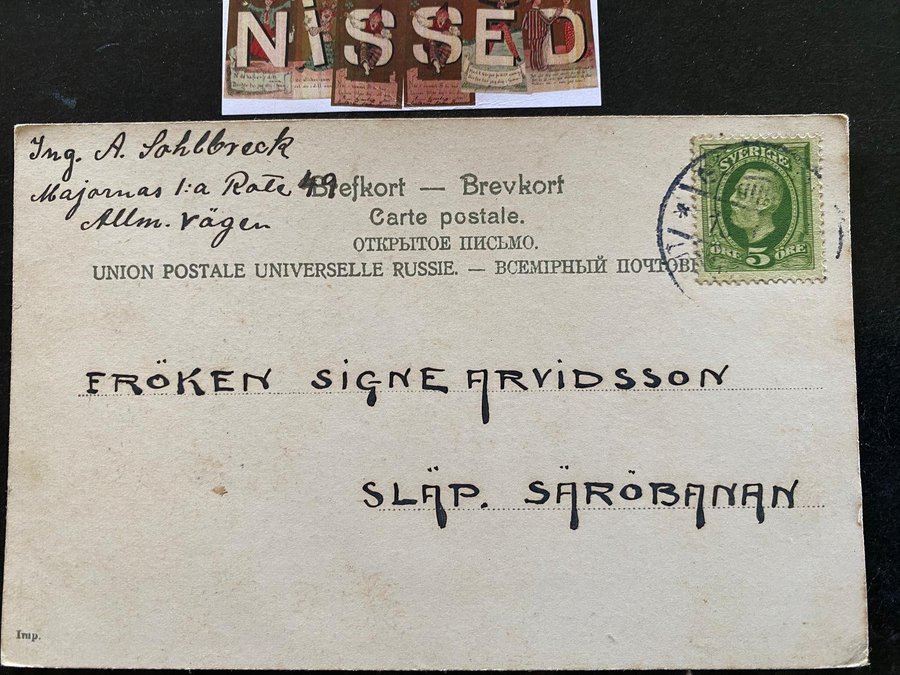 NiSSED
Ing. A. Sohlbreck
Majornas 1:a Rote 49
Allm. vägen
Brefkort — Brevkort
Carte postale.
ОТКРЫТОЕ ПИСЬМО.
UNION POSTALE UNIVERSELLE RUSSIE. — ВСЕМІРНЫЙ ПОЧТОВЫ
SVERIGE
5
ÖRE ÖRE
FRÖKEN SIGNE ARVIDSSON
SLÄP. SÄRÖBANAN
Imp.